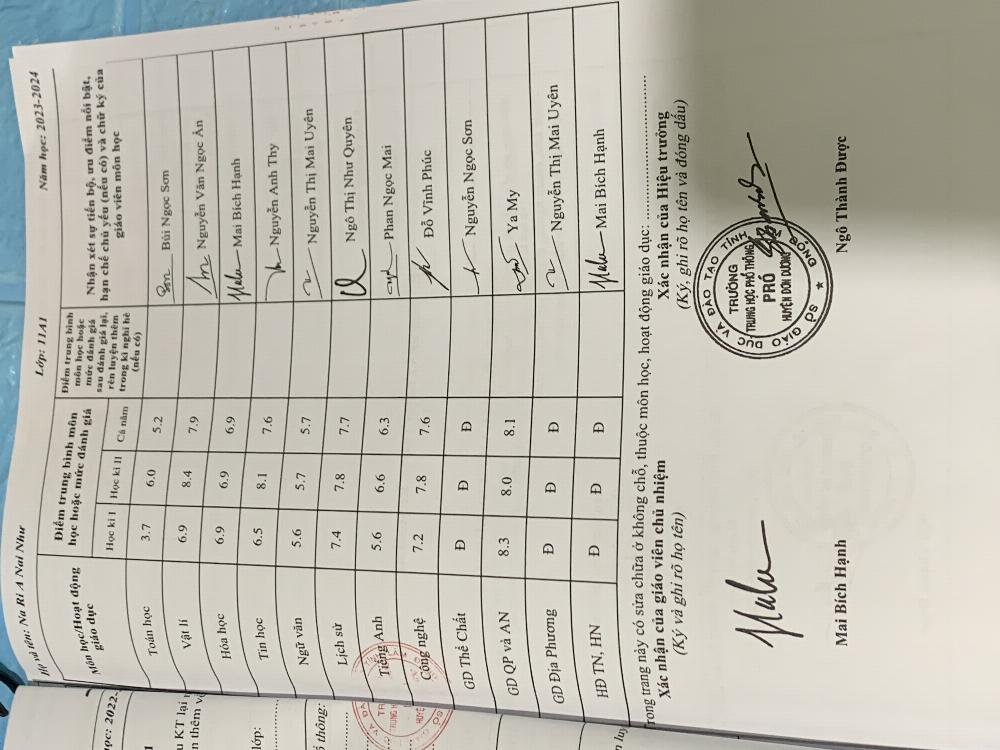 Họ và tên: Na Ri A Nai Như
Lớp: 11A1
Năm học: 2023-2024
Môn học/Hoạt động giáo dục
Điểm trung bình môn học hoặc mức đánh giá
Học kì I
Học kì II
Cả năm
Điểm trung bình môn học hoặc mức đánh giá sau đánh giá lại, rèn luyện thêm trong kì nghỉ hè (nếu có)
Nhận xét sự tiến bộ, ưu điểm nổi bật, hạn chế chủ yếu (nếu có) và chữ ký của giáo viên môn học
Toán học 3.7 6.0 5.2 Bùi Ngọc Sơn
Vật lí 6.9 8.4 7.9 Nguyễn Văn Ngọc Ẩn
Hóa học 6.9 6.9 6.9 Mai Bích Hạnh
Tin học 6.5 8.1 7.6 Nguyễn Anh Thy
Ngữ văn 5.6 5.7 5.7 Nguyễn Thị Mai Uyên
Lịch sử 7.4 7.8 7.7 Ngô Thị Như Quyên
Tiếng Anh 5.6 6.6 6.3 Phan Ngọc Mai
Công nghệ 7.2 7.8 7.6 Đỗ Vĩnh Phúc
GD Thể Chất Đ Đ Đ Nguyễn Ngọc Sơn
GD QP và AN 8.3 8.0 8.1 Ya My
GD Địa Phương Đ Đ Đ Nguyễn Thị Mai Uyên
HĐ TN, HN Đ Đ Đ Mai Bích Hạnh
rong trang này có sửa chữa ở không chỗ, thuộc môn học, hoạt động giáo dục:
Xác nhận của giáo viên chủ nhiệm
(Ký và ghi rõ họ tên)
Mai Bích Hạnh
Xác nhận của Hiệu trưởng
(Ký, ghi rõ họ tên và đóng dấu)
SỞ GIÁO DỤC VÀ ĐÀO TẠO TỈNH
TRƯỜNG
TRUNG HỌC PHỔ THÔNG
PRÓ
HUYỆN ĐƠN DƯƠNG
Ngô Thành Được